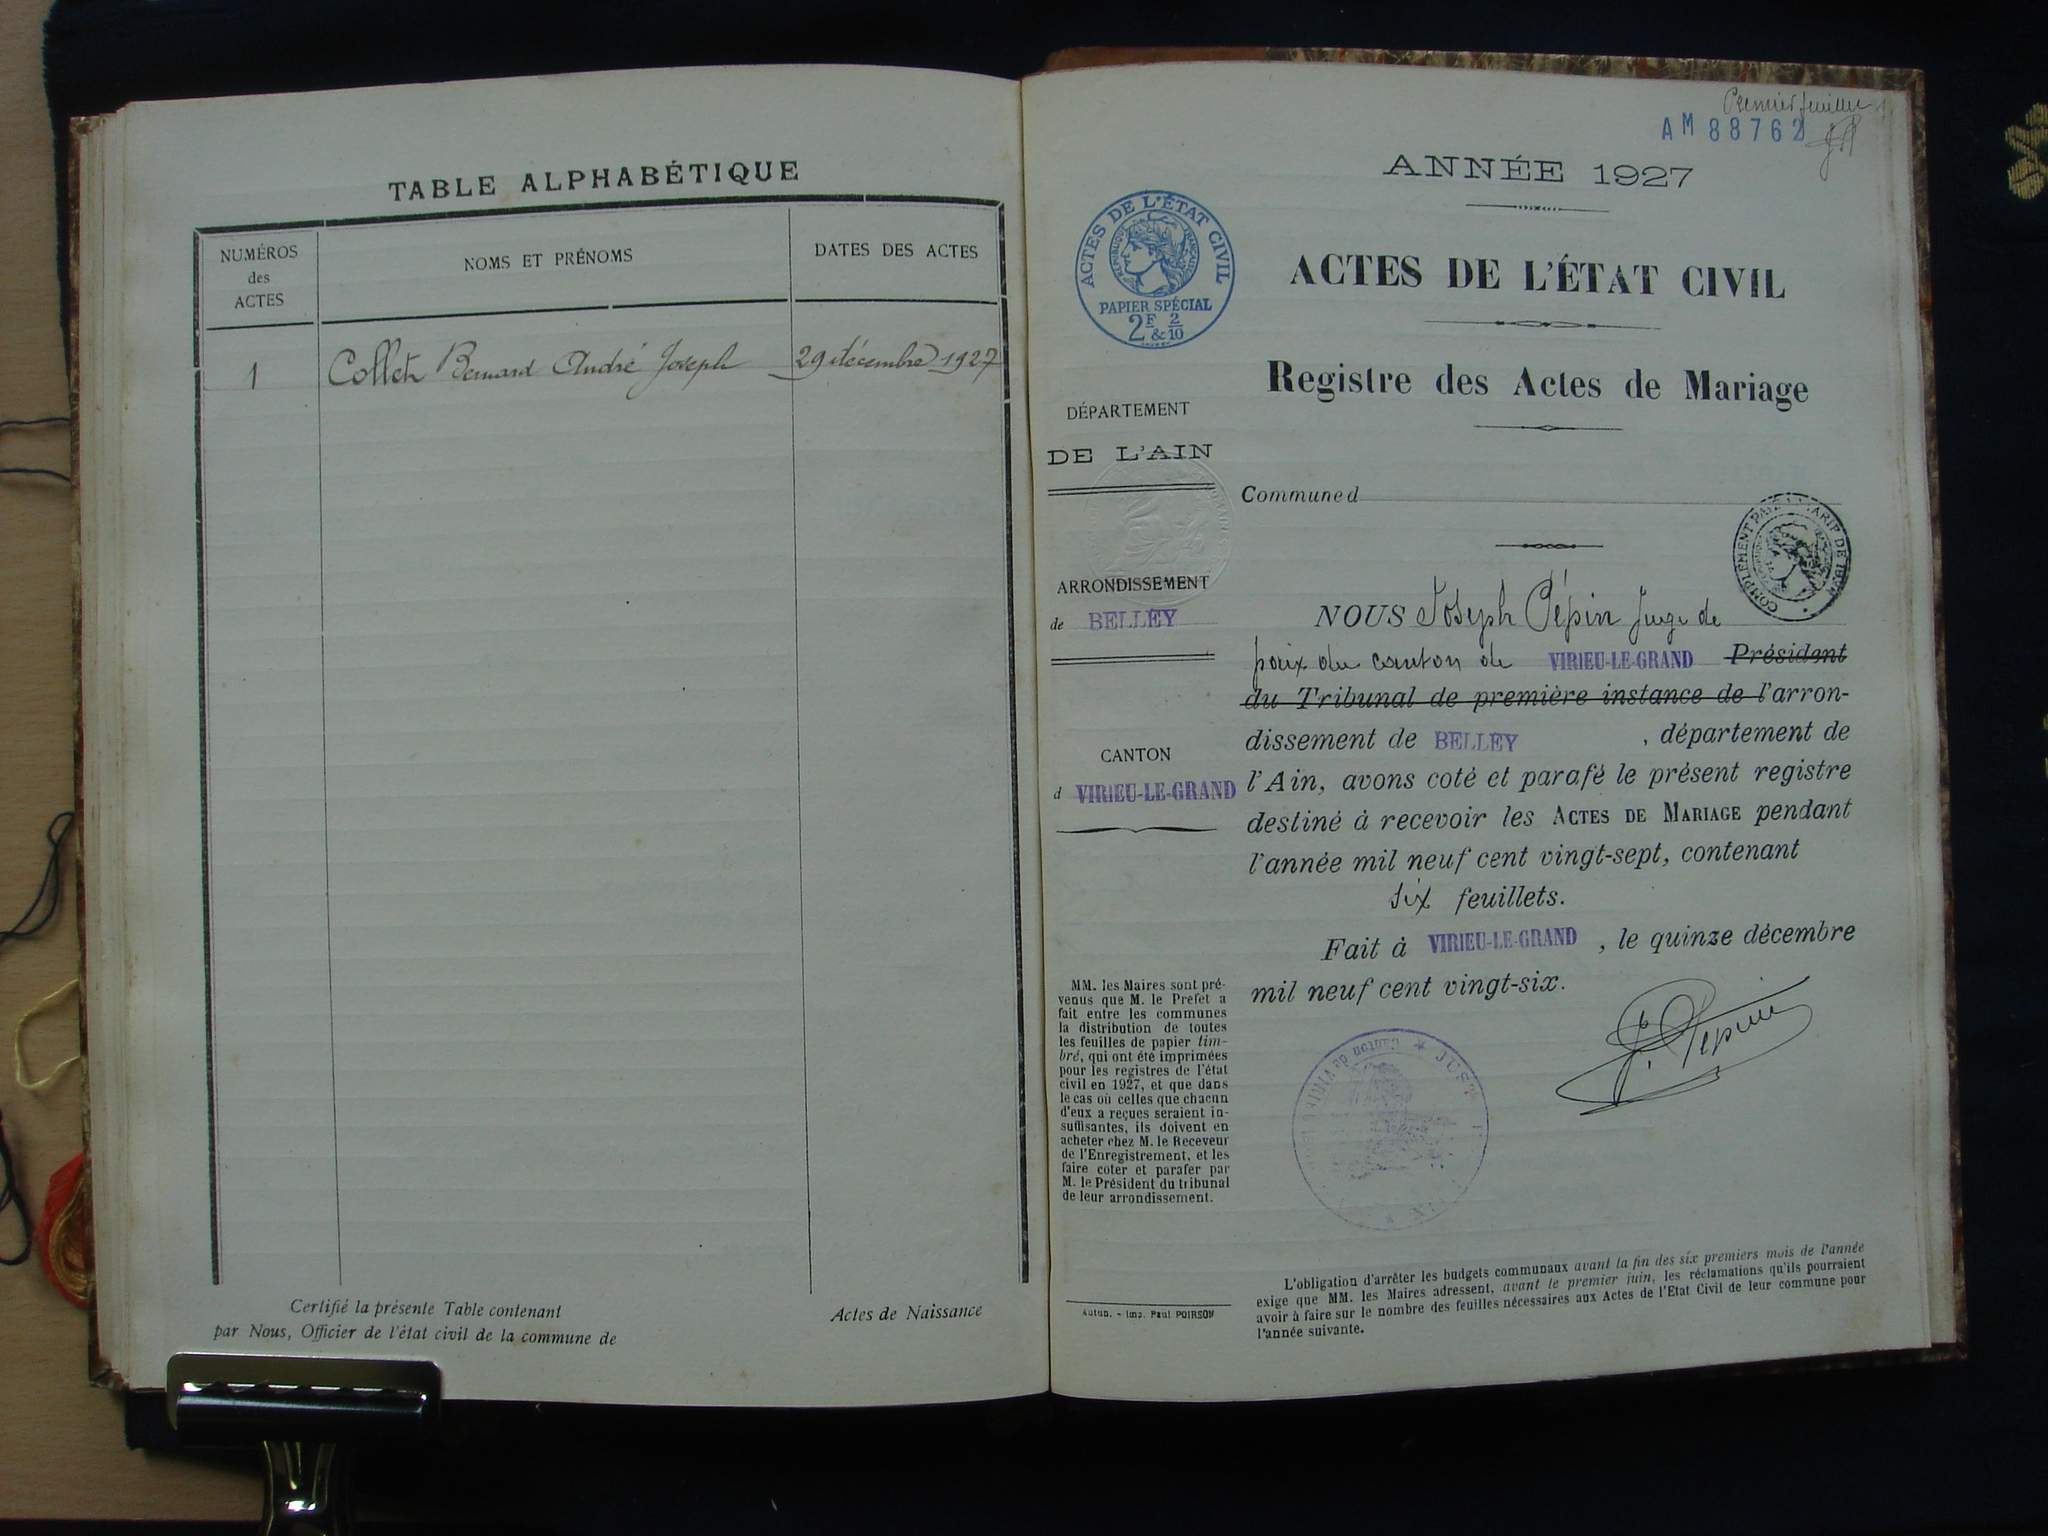 TABLE ALPHABÉTIQUE
NUMÉROS
des
ACTES
NOMS ET PRÉNOMS
DATES DES ACTES
1
Collet Bernard André Joseph
29 décembre 1927
Certifié la présente Table contenant
par Nous, Officier de l'état civil de la commune de
Actes de Naissance
Premier feuillet
AM 88762
ANNÉE 1927
ACTES DE L'ÉTAT CIVIL
RÉPUBLIQUE FRANÇAISE
PAPIER SPÉCIAL
2F & 2/10
ACTES DE L'ÉTAT CIVIL
Registre des Actes de Mariage
DÉPARTEMENT
DE L'AIN
Commune d
COMPLÉMENT PAYÉ TARIF DE
ARRONDISSEMENT
de BELLEY
CANTON
d VIRIEU-LE-GRAND
NOUS Joseph Pépin Juge de
paix du canton de VIRIEU-LE-GRAND Président
du Tribunal de première instance de l'arron-
dissement de BELLEY , département de
l'Ain, avons coté et parafé le présent registre
destiné à recevoir les ACTES DE MARIAGE pendant
l'année mil neuf cent vingt-sept, contenant
six feuillets.
Fait à VIRIEU-LE-GRAND , le quinze décembre
mil neuf cent vingt-six.
J. Pépin
Canton de
MM. les Maires sont pré-
venus que M. le Prefet a
fait entre les communes
la distribution de toutes
les feuilles de papier tim-
bré, qui ont été imprimées
pour les registres de l'état
civil en 1927, et que dans
le cas où celles que chacun
d'eux a reçues seraient in-
suffisantes, ils doivent en
acheter chez M. le Receveur
de l'Enregistrement, et les
faire coter et parafer par
M. le Président du tribunal
de leur arrondissement.
Autun. - Imp. Paul POIRSON
L'obligation d'arrêter les budgets communaux avant la fin des six premiers mois de l'année
exige que MM. les Maires adressent, avant le premier juin, les réclamations qu'ils pourraient
avoir à faire sur le nombre des feuilles nécessaires aux Actes de l'Etat Civil de leur commune pour
l'année suivante.